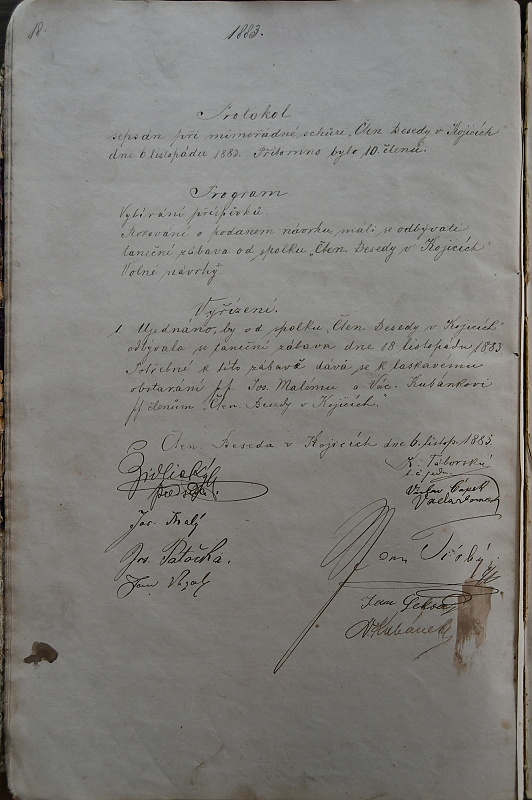 18.
1883.
Protokol
sepsán při mimořádné schůzi „Čten. Besedy v Kojicích“
dne 6. listopádu 1883. Přítomno bylo 10. členů.
Program
Vybírání příspěvků.
Rokování o podaném návrhu máli se odbývati
taneční zábava od spolku „Čten. Besedy v Kojicích“
Volné návrhy.
Vyřízení.
1. Ujednáno, by od spolku „Čten. Besedy v Kojicích“
odbývala se taneční zábava dne 18 listopádu 1883
Potřebné k této zábavě dává se k laskavému
obstarání pp. Jos. Malému a Vác. Kubánkovi
pp členům „Čten. Besedy v Kojicích.“
Čten. Beseda v Kojicích dne 6. listop. 1883
K. Táborský
předseda.
Václav Čápek
Jos. Malý
Jos. Patočka.
Jan
Jan
V Kubánek